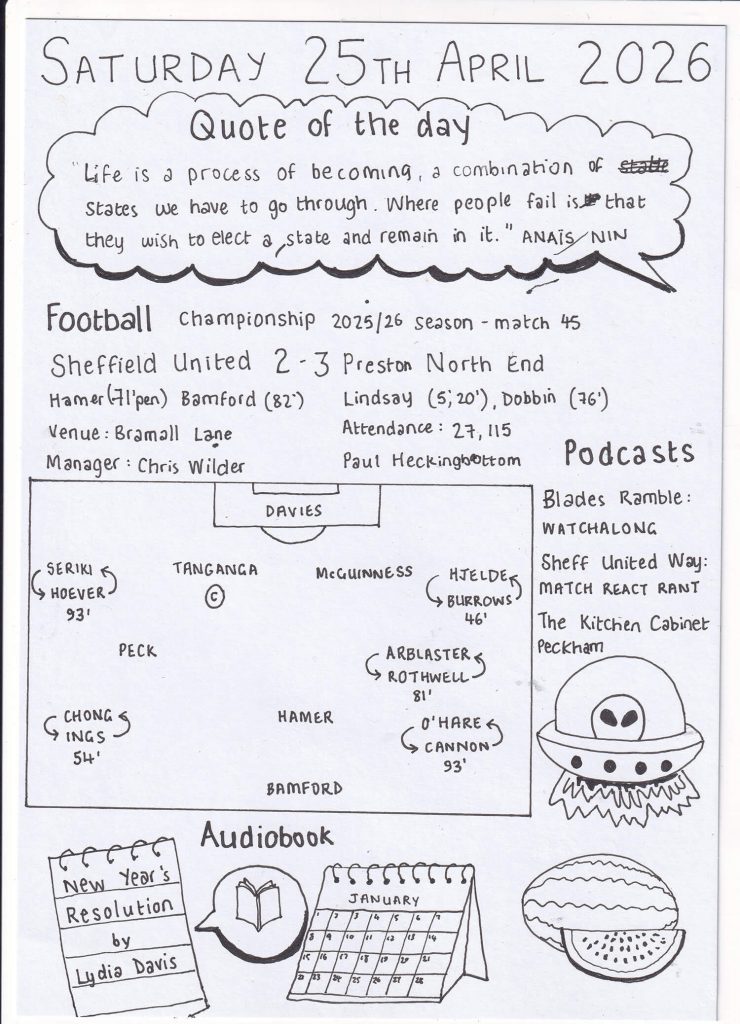 SATURDAY 25TH APRIL 2026
Quote of the day
"Life is a process of becoming, a combination of
states we have to go through. Where people fail is that
they wish to elect a state and remain in it." ANAÏS NIN
Football Championship 2025/26 season - match 45
Sheffield United 2-3 Preston North End
Hamer (71'pen) Bamford (82')
Lindsay (5', 20'), Dobbin (76')
Venue: Bramall Lane
Attendance: 27,115
Manager: Chris Wilder
Paul Heckingbottom
DAVIES
SERIKI
HOEVER
93'
TANGANGA
C
McGUINNESS
HJELDE
BURROWS
46'
PECK
ARBLASTER
ROTHWELL
81'
CHONG
INGS
54'
HAMER
O'HARE
CANNON
93'
BAMFORD
Podcasts
Blades Ramble:
WATCHALONG
Sheff United Way:
MATCH REACT RANT
The Kitchen Cabinet
Peckham
Audiobook
New Year's
Resolution
by
Lydia Davis
JANUARY
1 2 3 4 5 6 7
8 9 10 11 12 13 14
15 16 17 18 19 20 21
22 23 24 25 26 27 28